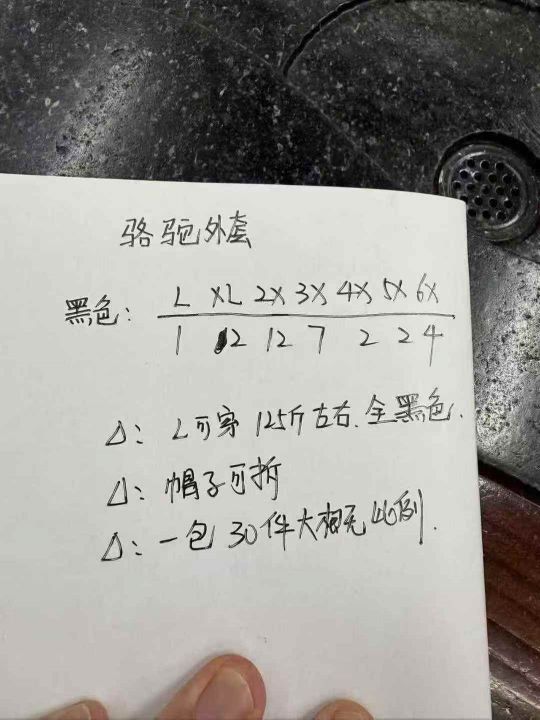 骆驼外套
黑色: L XL 2X 3X 4X 5X 6X
1 2 12 7 2 2 4
△: L可穿125斤左右.全黑色.
△: 帽子可拆
△: 一包30件大概比例.